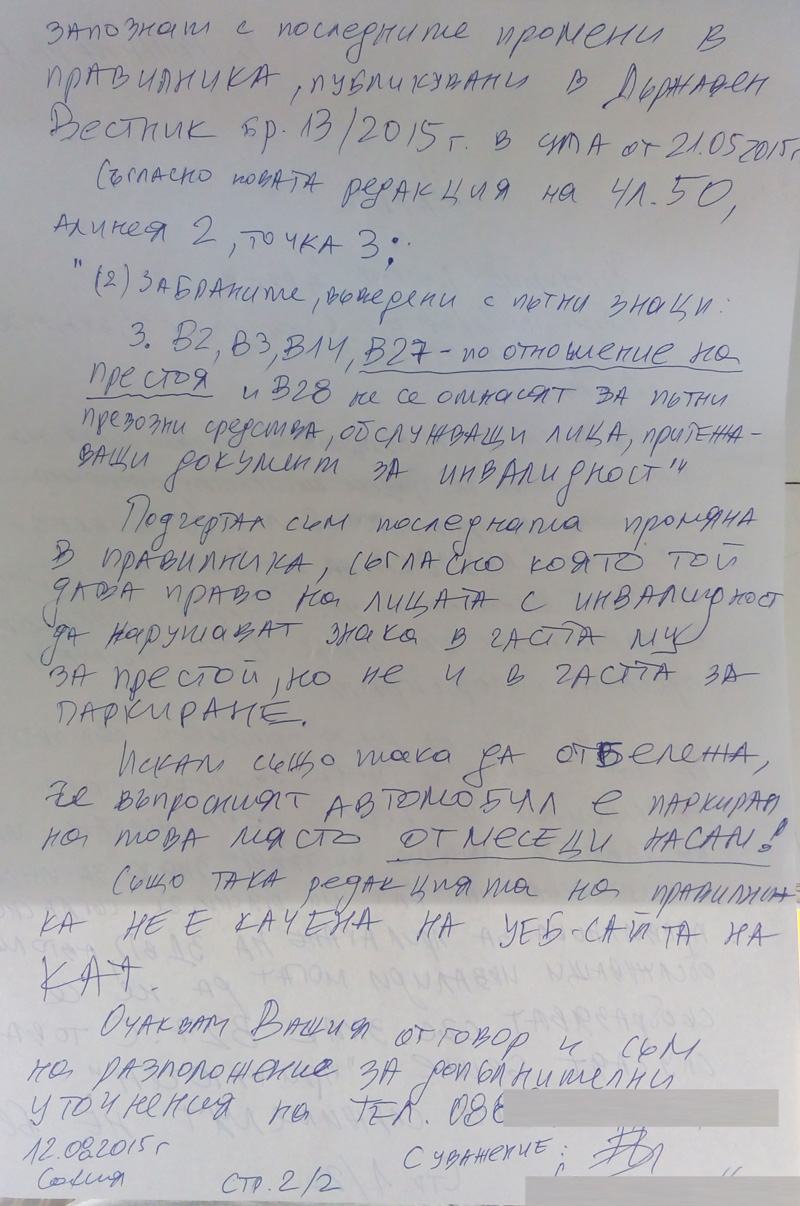 запознат с последните промени в
правилника, публикувани в Държавен
Вестник бр. 13/2015г. в от 21.05.2015г
Съгласно новата редакция на чл. 50,
алинея 2, точка 3:
"(2) Забраните, въведени с пътни знаци:
3. В2, В3, В14, В27 - по отношение на
престоя и В28 не се отнасят за пътни
превозни средства, обслужващи лица, притежа-
ващи документ за инвалидност"
Подчертал съм последната промяна
в правилника, съгласно която той
дава право на лицата с инвалидност
да нарушават знака в частта му
за престой, но не и в частта за
паркиране.
Искам също така да отбележа,
че въпросният автомобил е паркиран
на това място от месеци насам!
Също така редакцията на правилни-
ка не е качена на уеб-сайта на
КАТ.
Очаквам Вашия отговор и съм
на разположение за допълнителни
уточнения на тел. 088
12.08.2015г С уважение:
София стр. 2/2